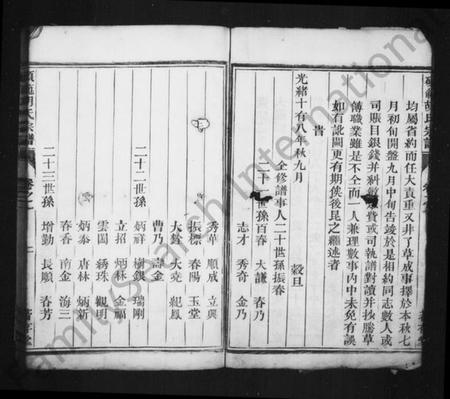 均屬省約而任大責重又非了草成事擇於本秋七
月初旬開盤九月中旬告竣於是相約同志數人或
司賬目銀錢并科費或司執譜對讀并抄謄草
傳職業雖是不全而人兼理數事內中未免有誤
如有訛闕更有期俟後昆之繼述者
旹
光緒十有八年秋九月 穀旦
仝修譜事人二十世孫振春
二十一世孫百春 大謙 春乃
志才 秀奇 金乃
秀華 順咸 立興
振標 春陽 玉堂
大 大堯 紀鳳
曹乃 壽金
二十二世孫 炳祥 樹銀 瑞剛
立招 炳林 金福
雲閣 綉珠 觀明
炳泰 唐林 炳新
春香 南金 海三
二十三世孫 增勤 長順 春芳
胡氏宗譜
FamilySearch International